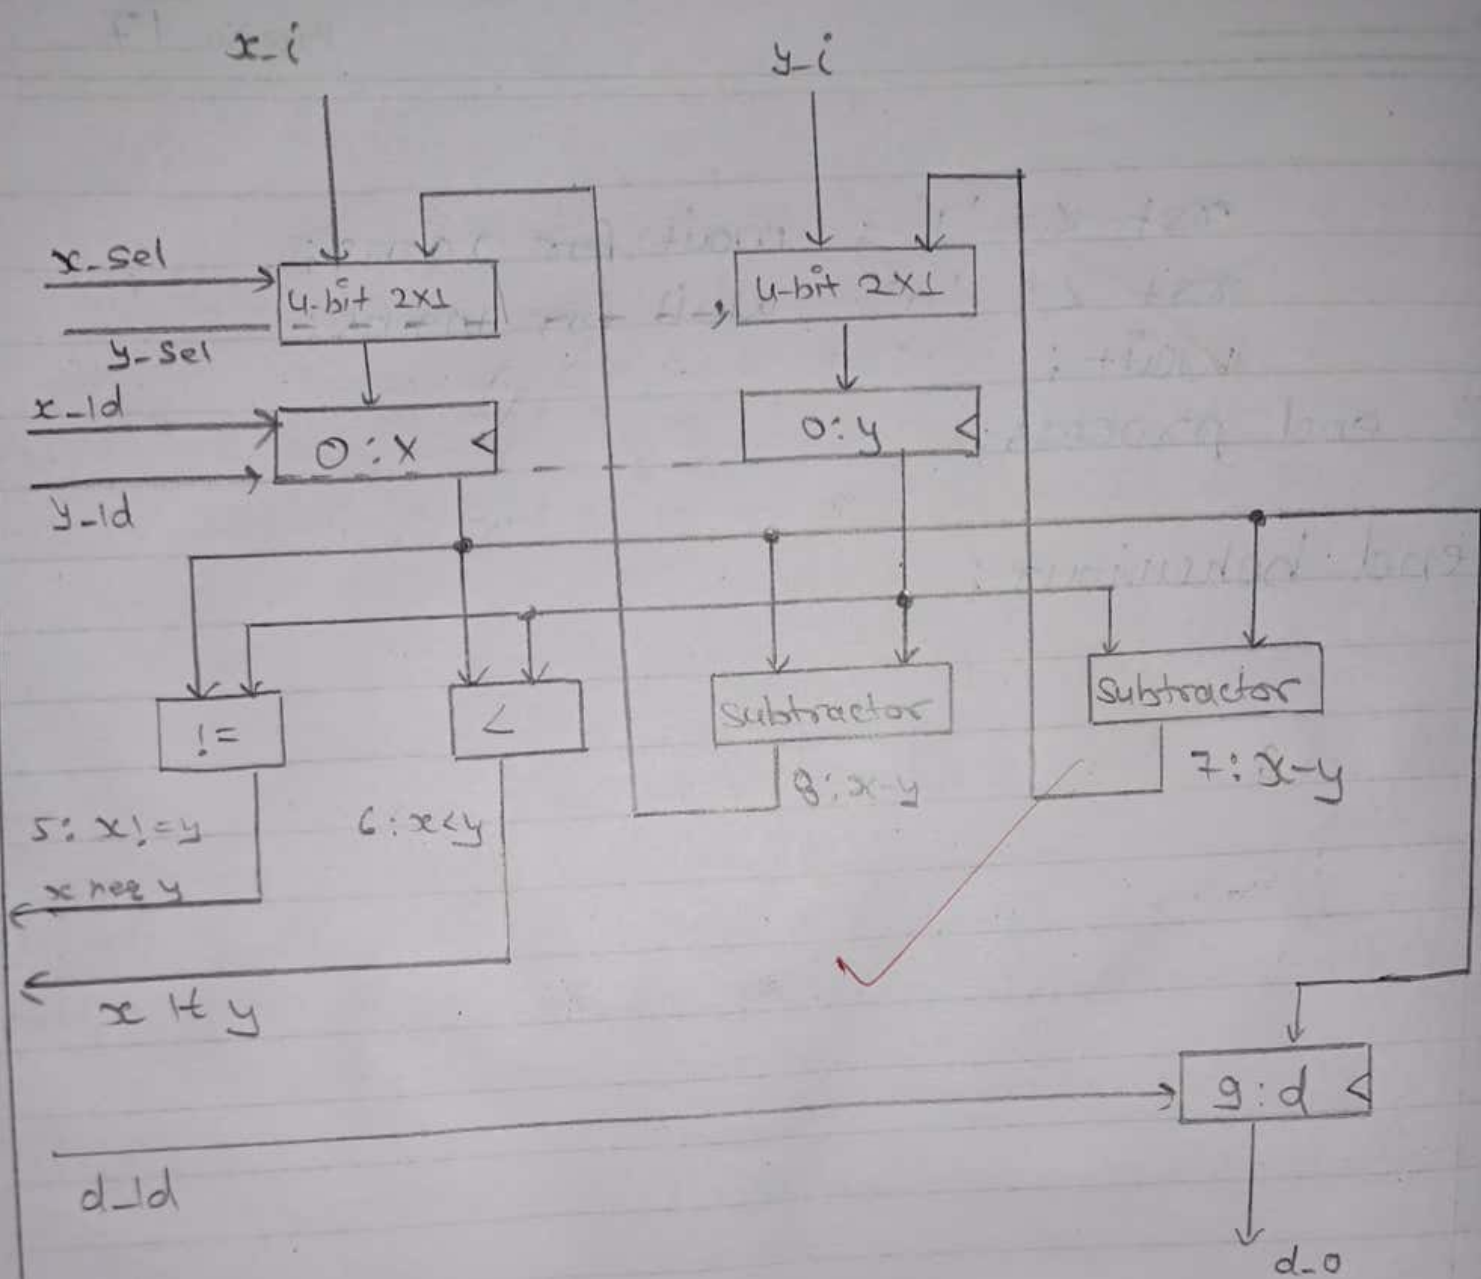 x_i
y_i
x_sel
4-bit 2x1
4-bit 2x1
y_sel
x_ld
0:x
0:y
y_ld
!=
<
subtractor
subtractor
5: x!=y
6: x<y
8: x-y
7: x-y
x neq y
x lt y
9:d
d_ld
d_o